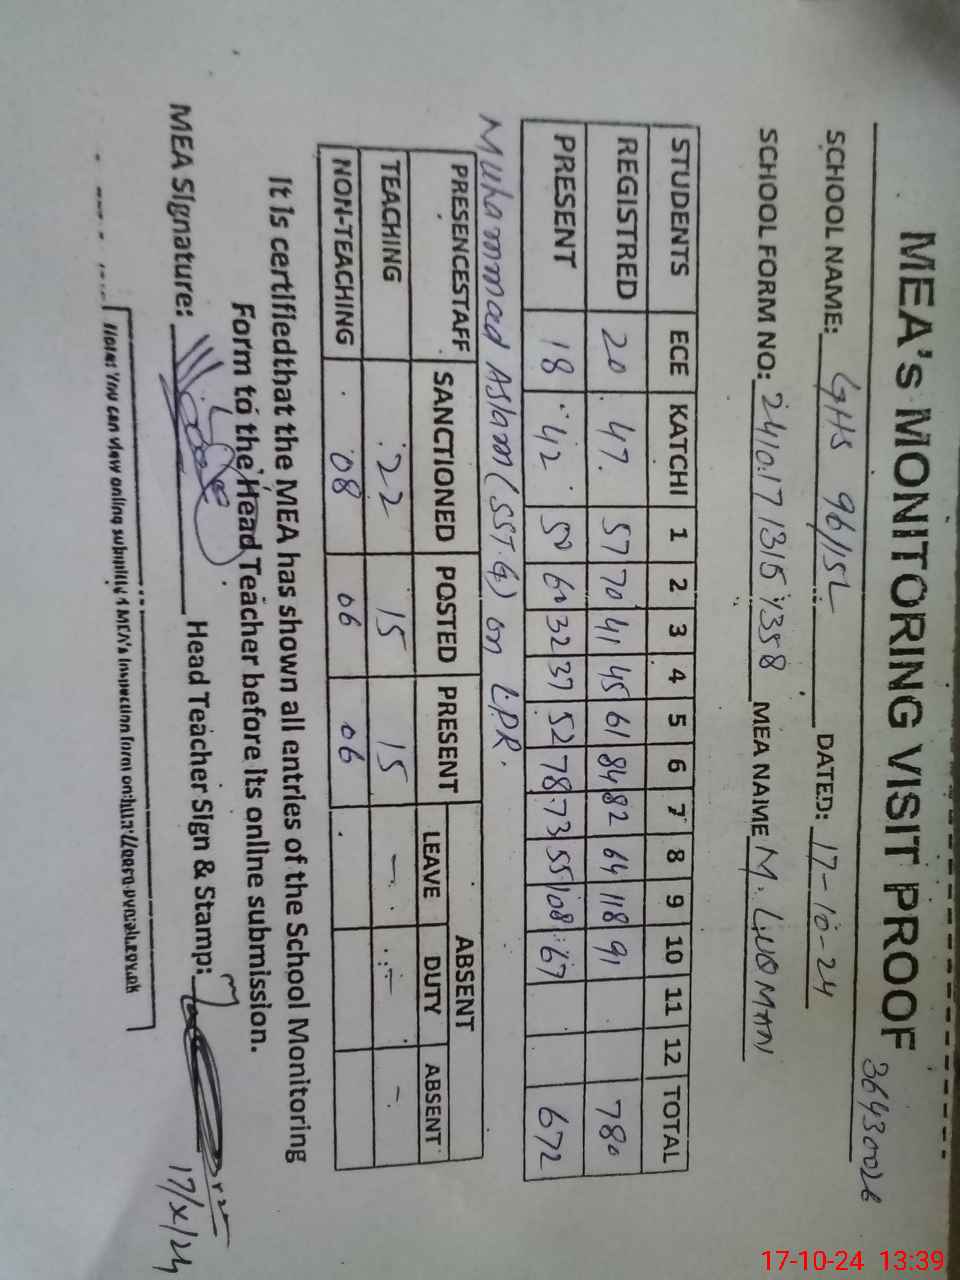 MEA's MONITORING VISIT PROOF
36430026
SCHOOL NAME: GHS 96/15L DATED: 17-10-24
SCHOOL FORM NO: 2410171315 1358 MEA NAME M. LUQMAN
STUDENTS ECE KATCHI 1 2 3 4 5 6 7 8 9 10 11 12 TOTAL
REGISTRED 20 47 57 70 41 45 61 84 82 64 118 91 780
PRESENT 18 42 50 60 32 37 52 78 73 55 108 67 672
Muhammad Aslam (SST.G) on L.P.R.
PRESENCESTAFF SANCTIONED POSTED PRESENT ABSENT
LEAVE DUTY ABSENT
TEACHING 22 15 15 - - -
NON-TEACHING 08 06 06
It is certifiedthat the MEA has shown all entries of the School Monitoring
Form to the Head Teacher before its online submission.
MEA Signature: Head Teacher Sign & Stamp:
17/X/24
Note: You can view online submitted MEA's Inspection form on:
17-10-24 13:39